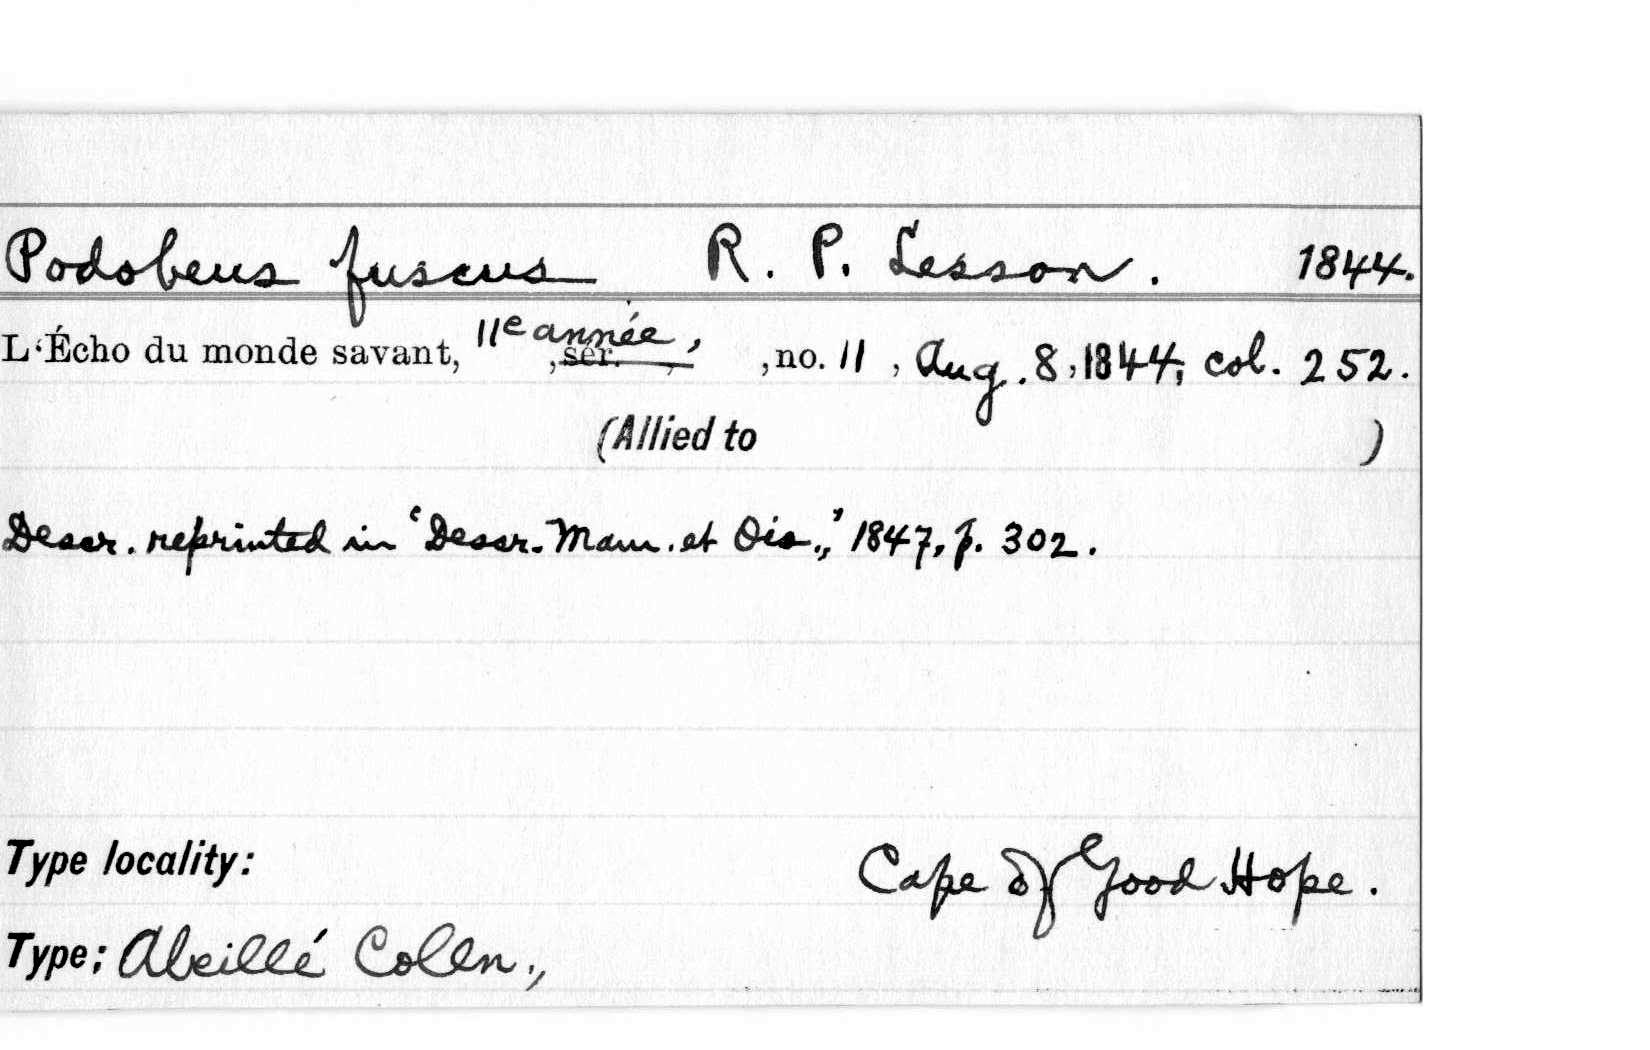 Podobeus fuscus R. P. Lesson. 1844.
L'Écho du monde savant, 11e année, ,sér. , ,no. 11 , Aug. 8, 1844; col. 252.
(Allied to )
Descr. reprinted in "Descr. Mam. et Ois.," 1847, p. 302.
Type locality: Cape of Good Hope.
Type; Abeillé Colln.,